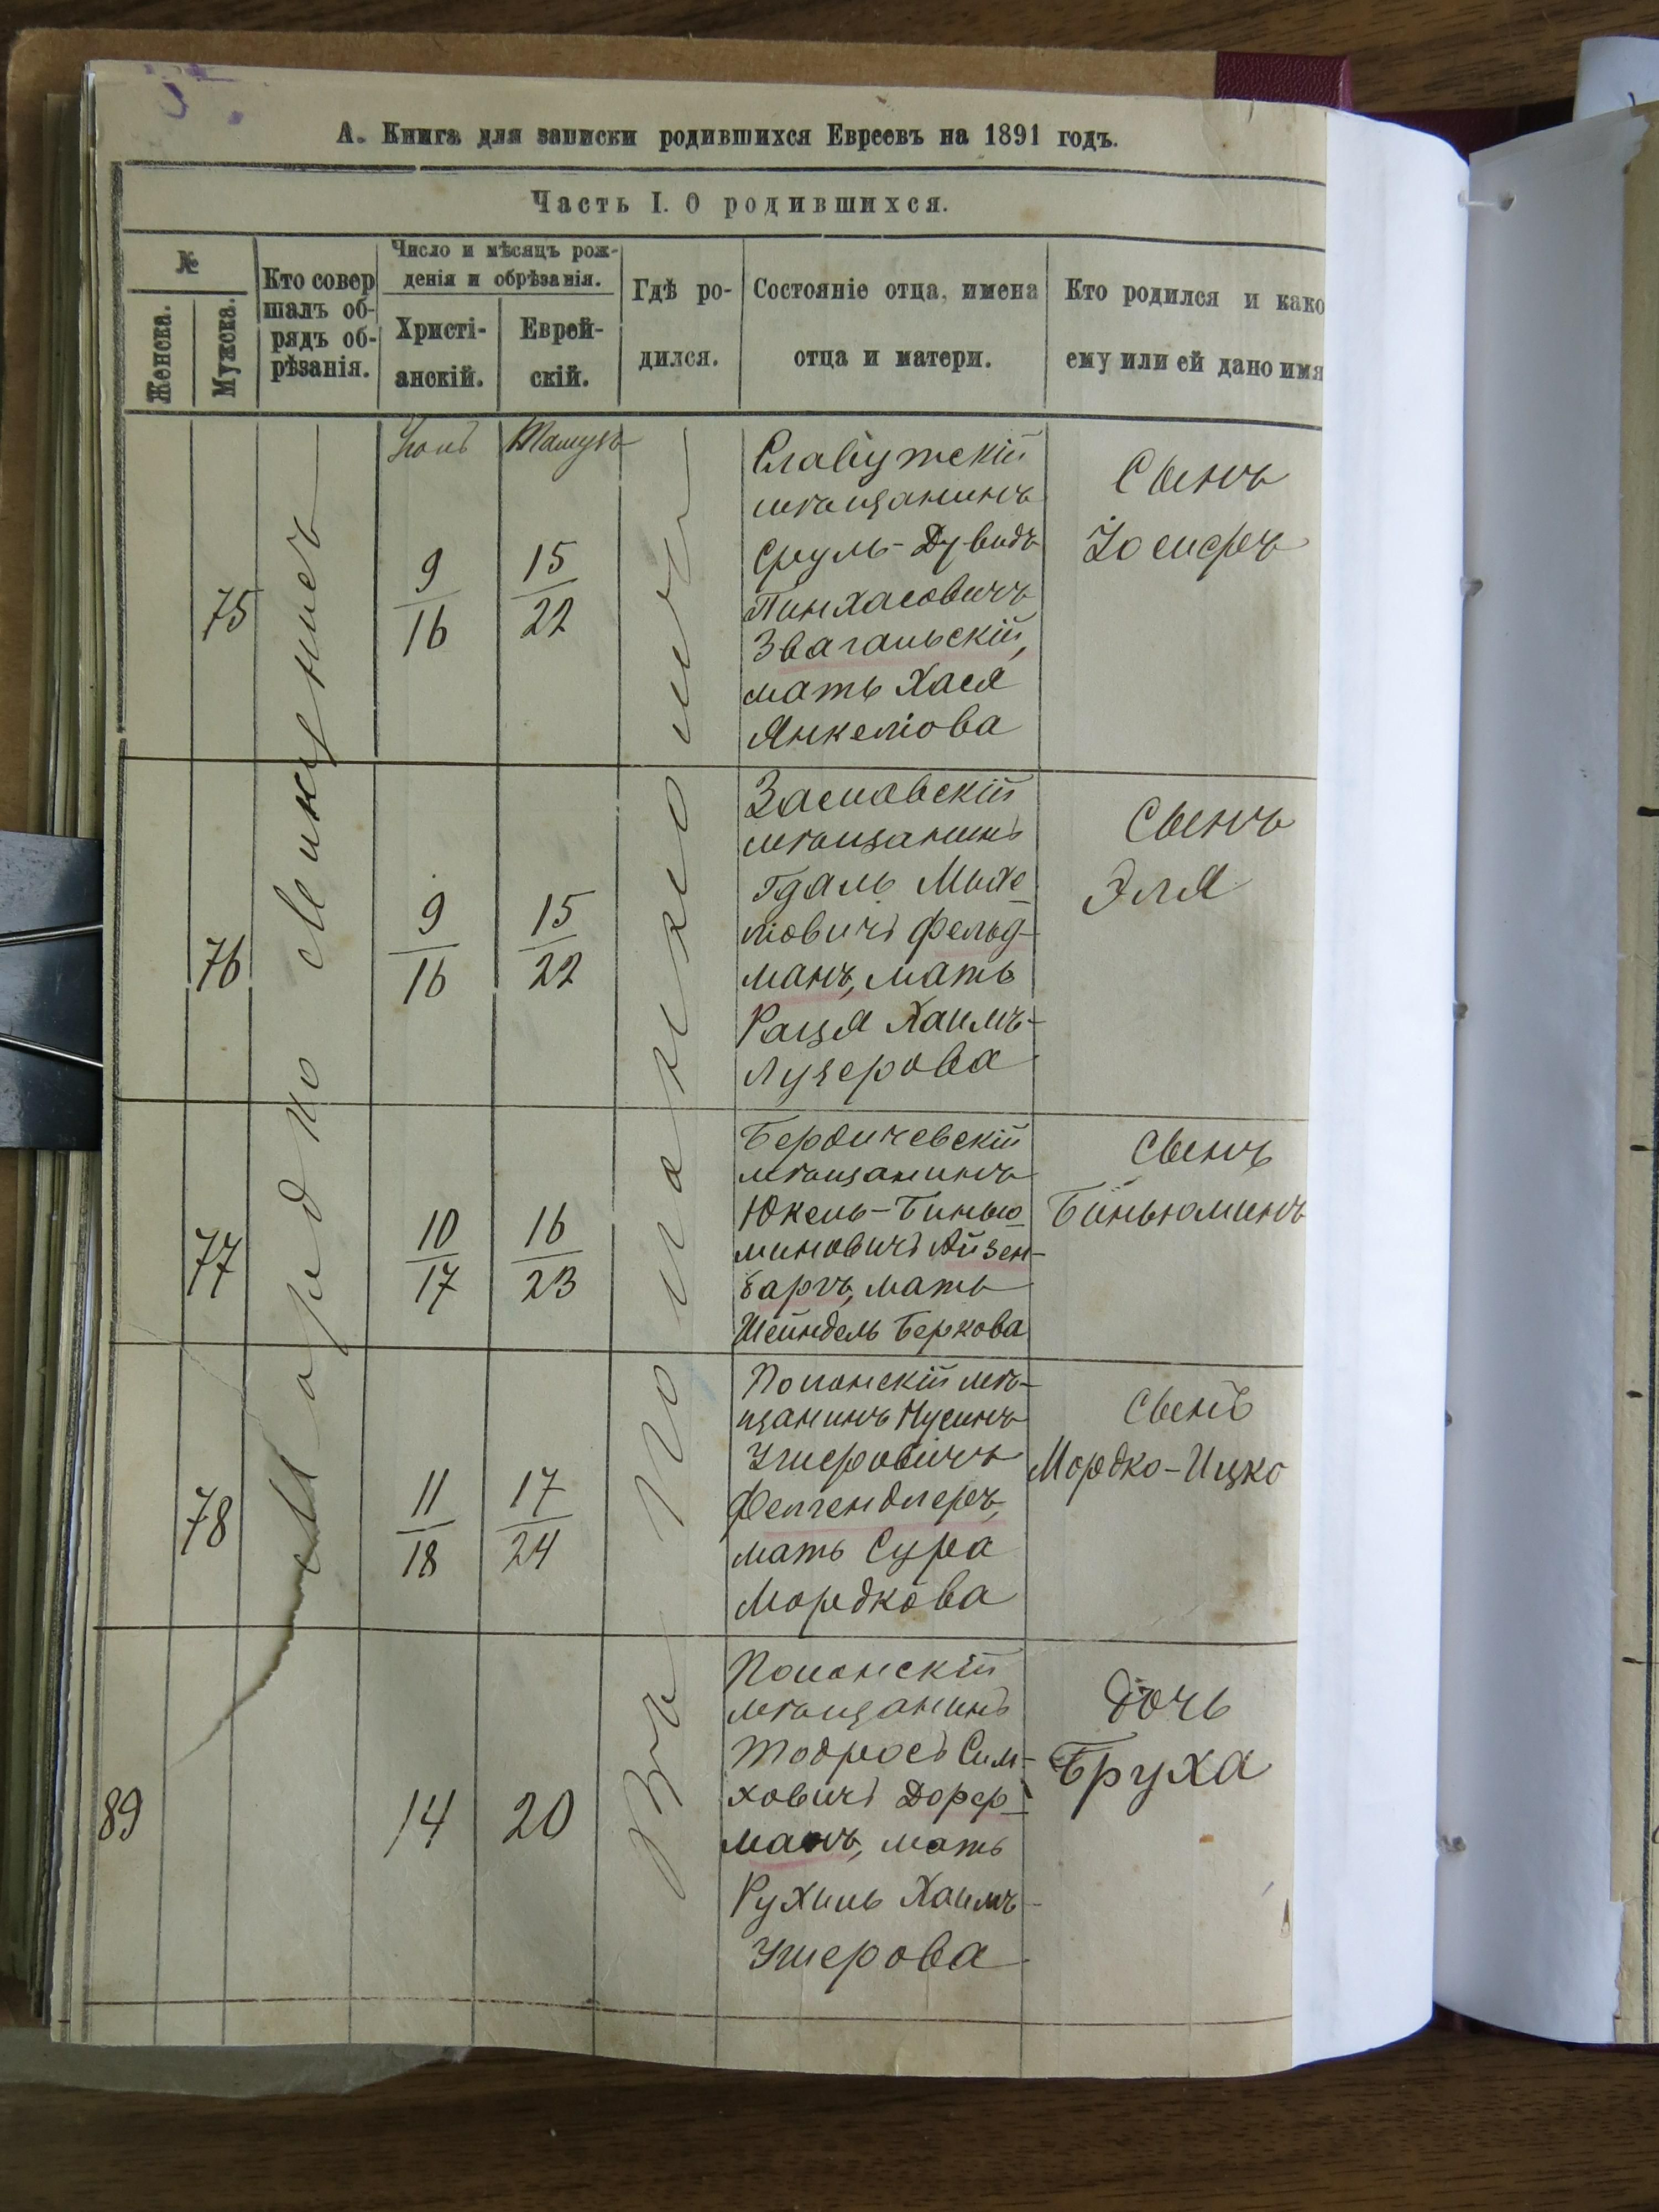 А. Книга для записки родившихся Евреевъ на 1891 годъ.
Часть I. О родившихся.
№
Женска.
Мужска.
Кто совер
шалъ об-
рядъ об-
рѣзанія.
Число и мѣсяцъ рож-
денія и обрѣзанія.
Христі-
анскій.
Еврей-
скій.
Гдѣ ро-
дился.
Состояніе отца, имена
отца и матери.
Кто родился и како
ему или ей дано имя
Мордко
Въ Полонномъ
Іюль
Тамузъ
75
9
16
15
22
Славутскій
мѣщанинъ
Сруль-Дувидъ
Пинхасовичъ
Звагальскій,
мать Хася
Янкелiова
Сынъ
Іосифъ
76
9
16
15
22
Заславскій
мѣщанинъ
Гдаль Михе
лiовичъ Фельд-
манъ, мать
Рация Хаимъ-
Лузерова
Сынъ
Эля
77
10
17
16
23
Бердичевскій
мѣщанинъ
Юкель-Биньо
миновичъ Айзен-
баргъ, мать
Шейндель Беркова
Сынъ
Биньюминъ
78
11
18
17
24
Полонскій мѣ-
щанинъ Нусинъ
Ушеровичъ
Фелгендлеръ,
мать Сура
Мордкова
Сынъ
Мордко-Ицко
89
14
20
Полонскій
мѣщанинъ
Тодросъ Сим-
ховичъ Дорф-
манъ, мать
Рухиль Хаимъ-
Ушерова
дочь
Бруха